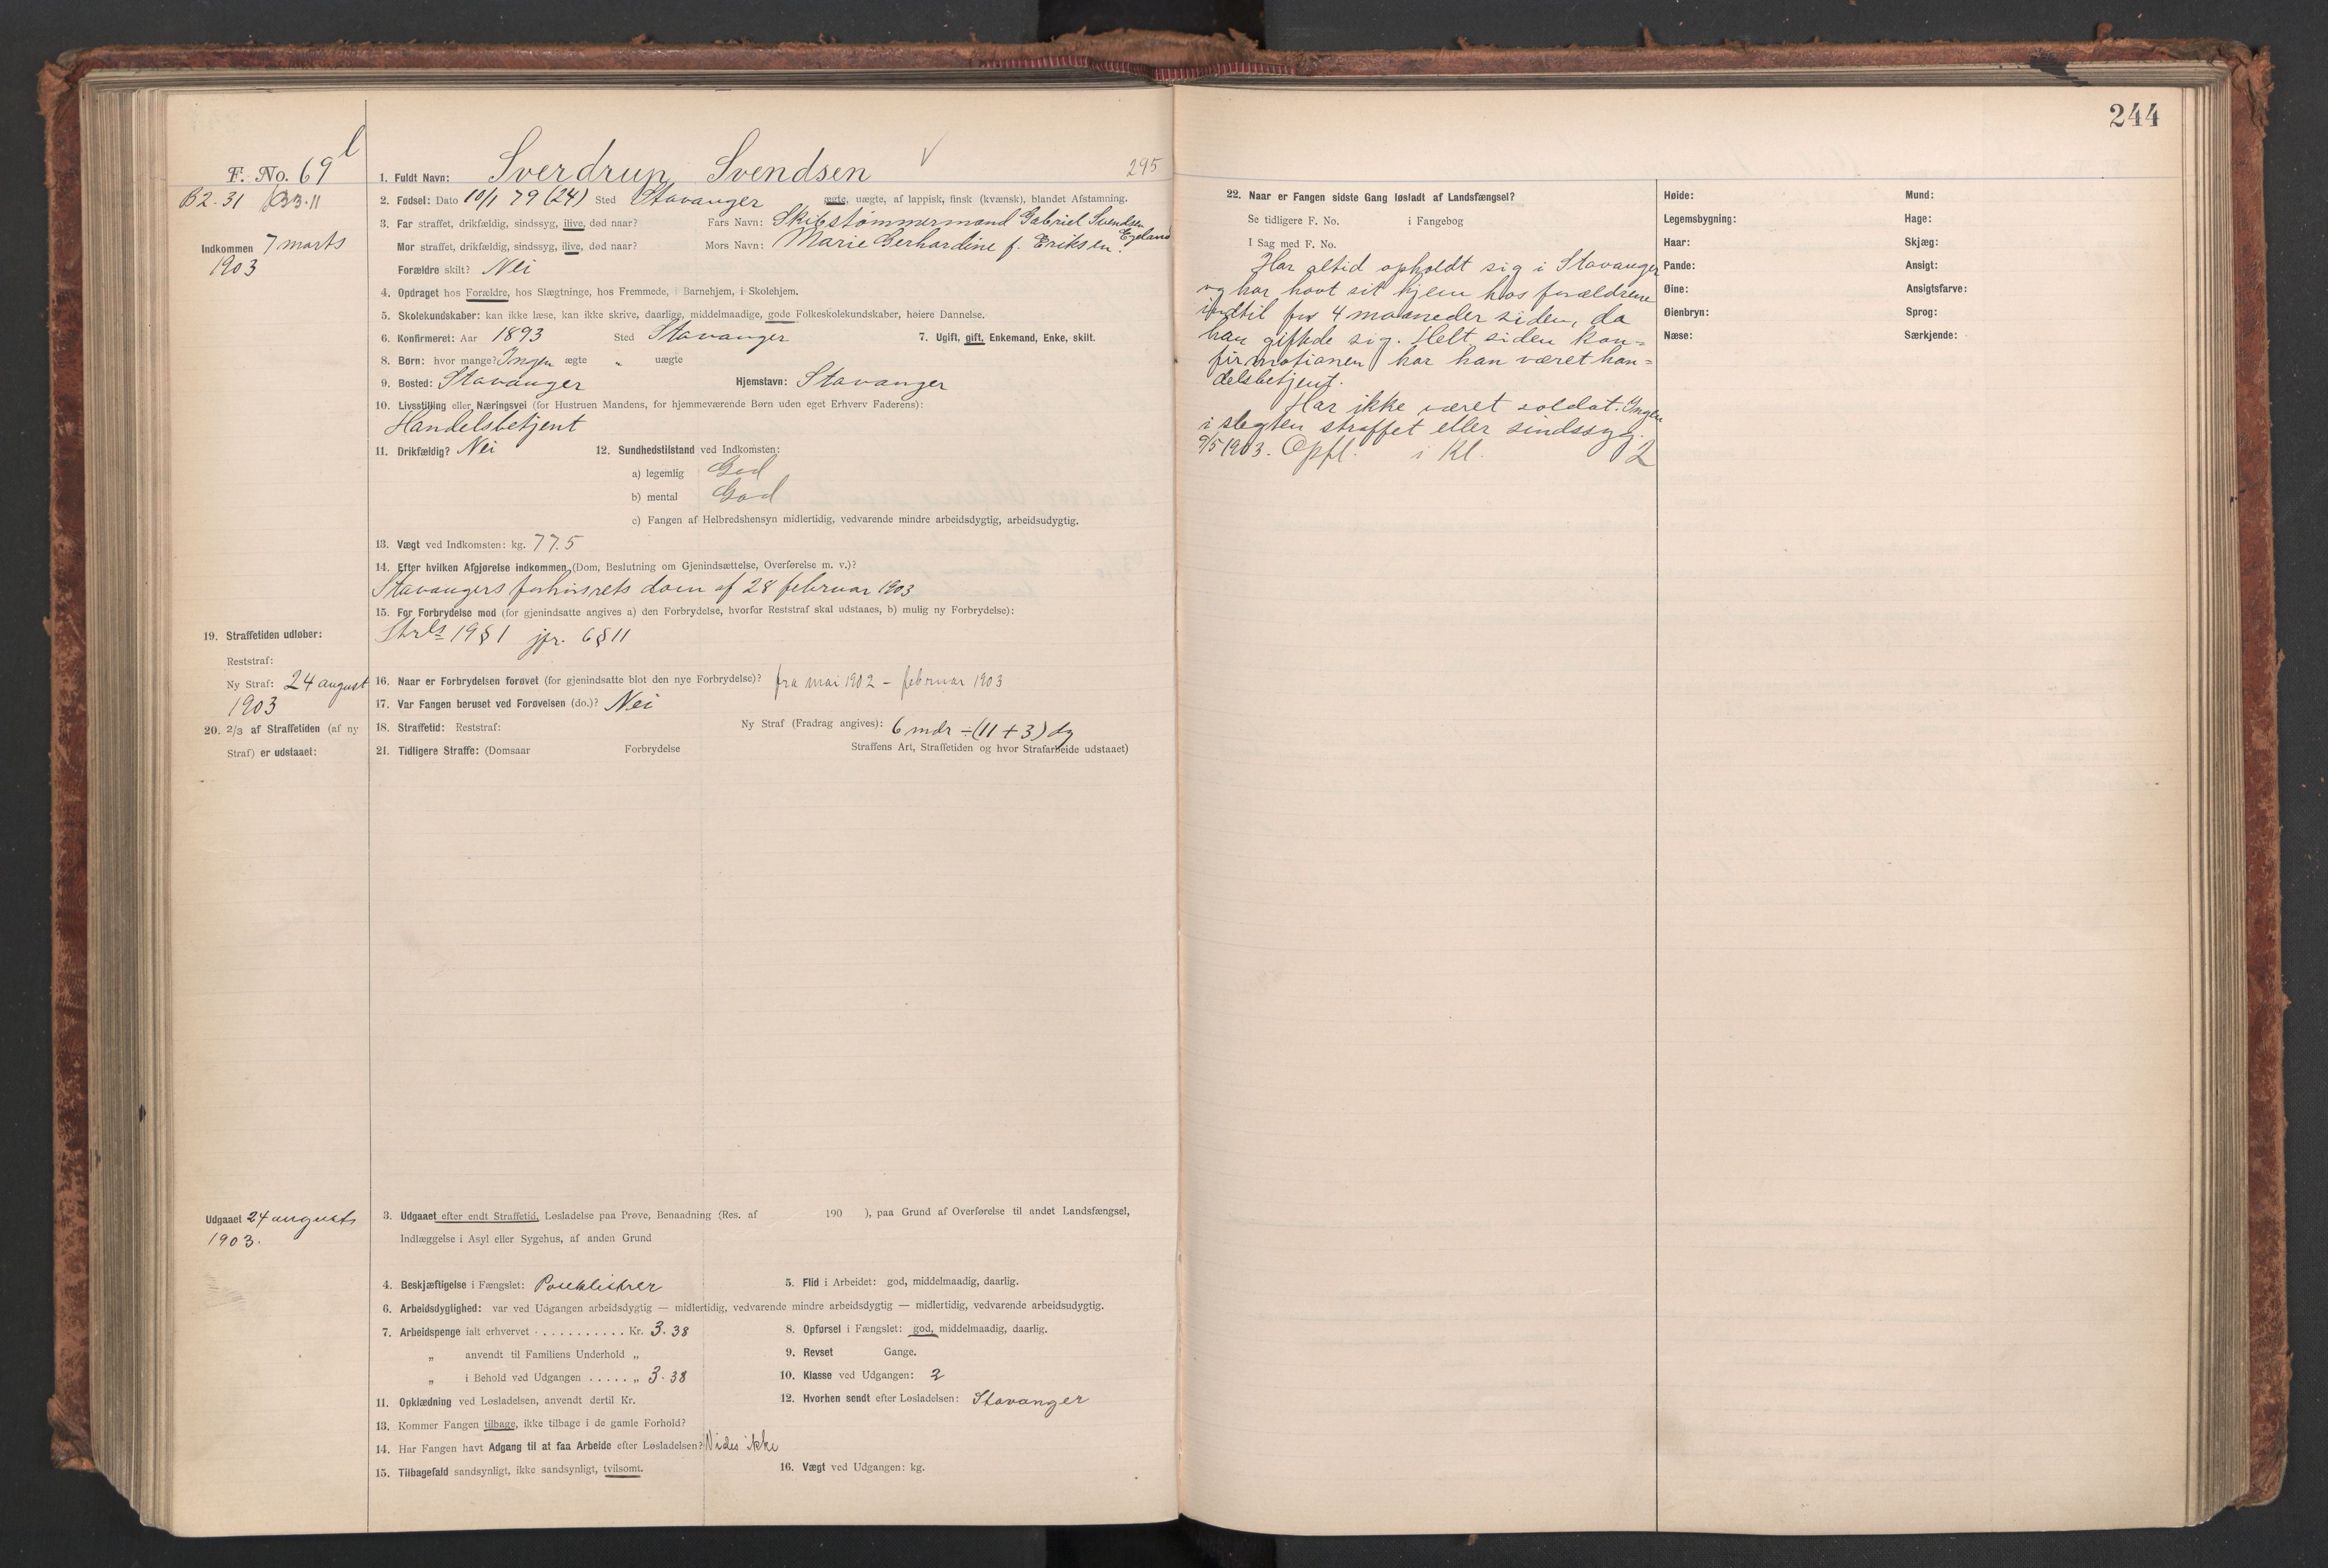 244
295
F. No. 69
1. Fuldt Navn: Sverdrup Svendsen
B2.31 B3.11
2. Fødsel: Dato 10/1 79 (24) Sted Stavanger ægte, uægte, af lappisk, finsk (kvænsk), blandet Afstamning.
3. Far straffet, drikfældig, sindssyg, ilive, død naar? Fars Navn: Skibstømmermand Gabriel Svendsen Egeland
Indkommen 7 marts
1903
Mor straffet, drikfældig, sindssyg, ilive, død naar? Mors Navn: Marie Gerhardine f. Eriksen.
Forældre skilt? Nei
4. Opdraget hos Forældre, hos Slægtninge, hos Fremmede, i Barnehjem, i Skolehjem.
5. Skolekundskaber: kan ikke læse, kan ikke skrive, daarlige, middelmaadige, gode Folkeskolekundskaber, høiere Dannelse.
6. Konfirmeret: Aar 1893 Sted Stavanger 7. Ugift, gift, Enkemand, Enke, skilt.
8. Børn: hvor mange? Ingen ægte „ uægte
9. Bosted: Stavanger Hjemstavn: Stavanger
10. Livsstilling eller Næringsvei (for Hustruen Mandens, for hjemmeværende Børn uden eget Erhverv Faderens):
Handelsbetjent
11. Drikfældig? Nei 12. Sundhedstilstand ved Indkomsten:
a) legemlig God
b) mental God
c) Fangen af Helbredshensyn midlertidig, vedvarende mindre arbeidsdygtig, arbeidsudygtig.
13. Vægt ved Indkomsten: kg. 77.5
14. Efter hvilken Afgjørelse indkommen (Dom, Beslutning om Gjenindsættelse, Overførelse m. v.)?
Stavangers forhørsrets dom af 28 februar 1903
15. For Forbrydelse mod (for gjenindsatte angives a) den Forbrydelse, hvorfor Reststraf skal udstaaes, b) mulig ny Forbrydelse):
Strls 19 § 1 jfr. 6 § 11
19. Straffetiden udløber:
Reststraf:
Ny Straf: 24 august
1903
16. Naar er Forbrydelsen forøvet (for gjenindsatte blot den nye Forbrydelse)? fra mai 1902 – februar 1903
17. Var Fangen beruset ved Forøvelsen (do.)? Nei
20. 2/3 af Straffetiden (af ny
Straf) er udstaaet:
18. Straffetid: Reststraf: Ny Straf (Fradrag angives): 6 mdr ÷ (11 + 3) dg
21. Tidligere Straffe: (Domsaar Forbrydelse Straffens Art, Straffetiden og hvor Strafarbeide udstaaet)
Udgaaet 24 augusts
1903.
3. Udgaaet efter endt Straffetid, Løsladelse paa Prøve, Benaadning (Res. af 190 ), paa Grund af Overførelse til andet Landsfængsel,
Indlæggelse i Asyl eller Sygehus, af anden Grund
4. Beskjæftigelse i Fængslet: Poseklistrer 5. Flid i Arbeidet: god, middelmaadig, daarlig.
6. Arbeidsdyglighed: var ved Udgangen arbeidsdygtig — midlertidig, vedvarende mindre arbeidsdygtig — midlertidig, vedvarende arbeidsudygtig.
7. Arbeidspenge ialt erhvervet . . . . . . . . . . . Kr. 3.38 8. Opførsel i Fængslet: god, middelmaadig, daarlig.
„ anvendt til Familiens Underhold „ 9. Revset Gange.
„ i Behold ved Udgangen . . . . . „ 3.38 10. Klasse ved Udgangen: 2
11. Opklædning ved Løsladelsen, anvendt dertil Kr. 12. Hvorhen sendt efter Løsladelsen: Stavanger
13. Kommer Fangen tilbage, ikke tilbage i de gamle Forhold?
14. Har Fangen havt Adgang til at faa Arbeide efter Løsladelsen? Vides ikke
15. Tilbagefald sandsynligt, ikke sandsynligt, tvilsomt. 16. Vægt ved Udgangen: kg.
22. Naar er Fangen sidste Gang løsladt af Landsfængsel?
Se tidligere F. No. i Fangebog
I Sag med F. No.
Har altid opholdt sig i Stavanger
og har havt sit hjem hos forældrene
indtil for 4 maaneder siden, da
han giftede sig. Helt siden kon=
firmationen har han været han=
delsbetjent.
Har ikke været soldat. Ingen
i slegten straffet eller sindssyg.
9/5 1903. Opfl. i Kl. 2
Høide: Mund:
Legemsbygning: Hage:
Haar: Skjæg:
Pande: Ansigt:
Øine: Ansigtsfarve:
Øienbryn: Sprog:
Næse: Særkjende: